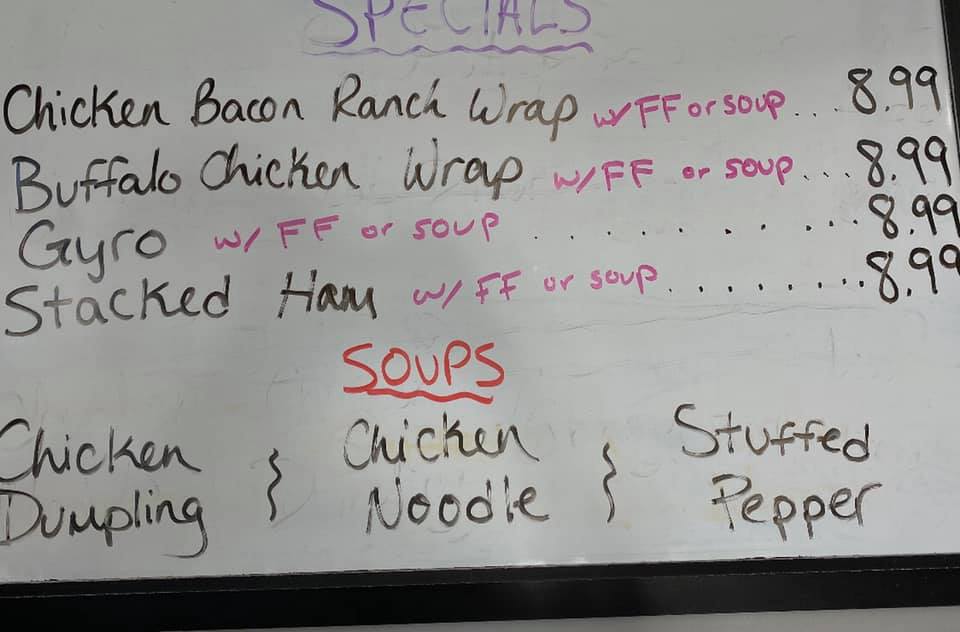 SPECIALS
Chicken Bacon Ranch Wrap w/ FF or soup... 8.99
Buffalo Chicken Wrap w/ FF or soup.... 8.99
Gyro w/ FF or soup . . . . . . . . . . . 8.99
Stacked Ham w/ FF or soup. . . . . . . ... 8.99
SOUPS
Chicken Dumpling } Chicken Noodle } Stuffed Pepper